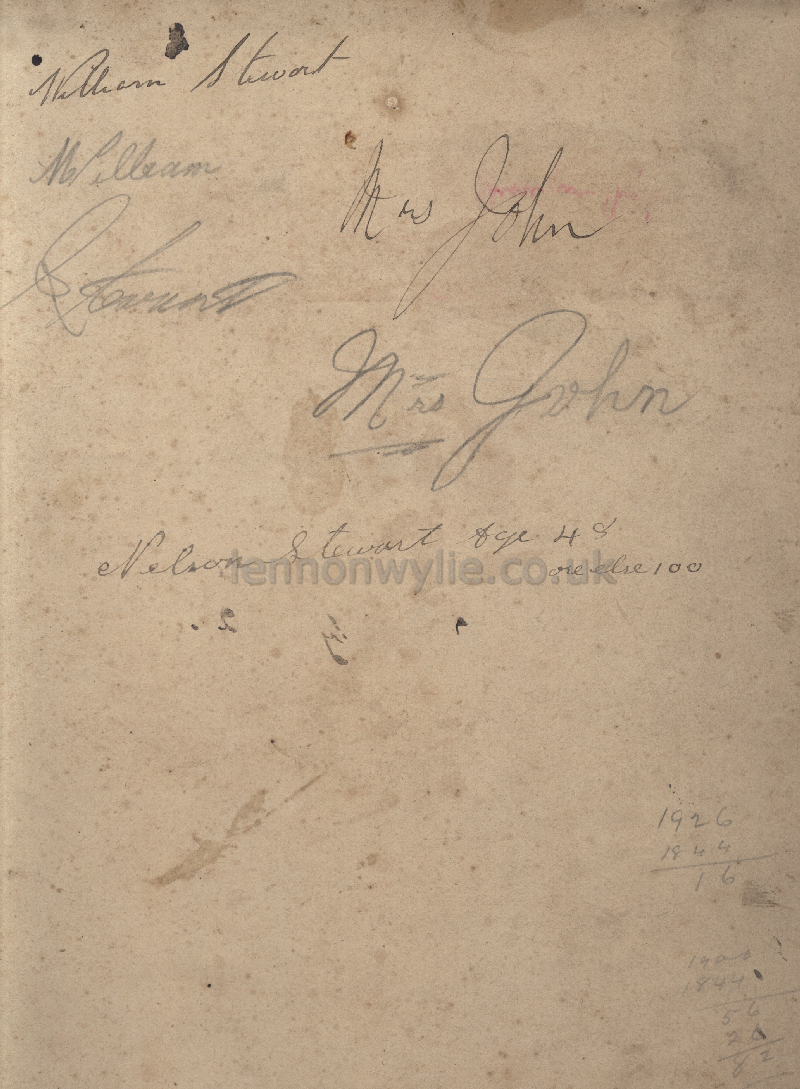 William Stewart
William
Stewart
Mrs John
Mrs John
Nelson Stewart Age 48
or else 100
lennonwylie.co.uk
1926
1844
16
1900
1844
56
26
82